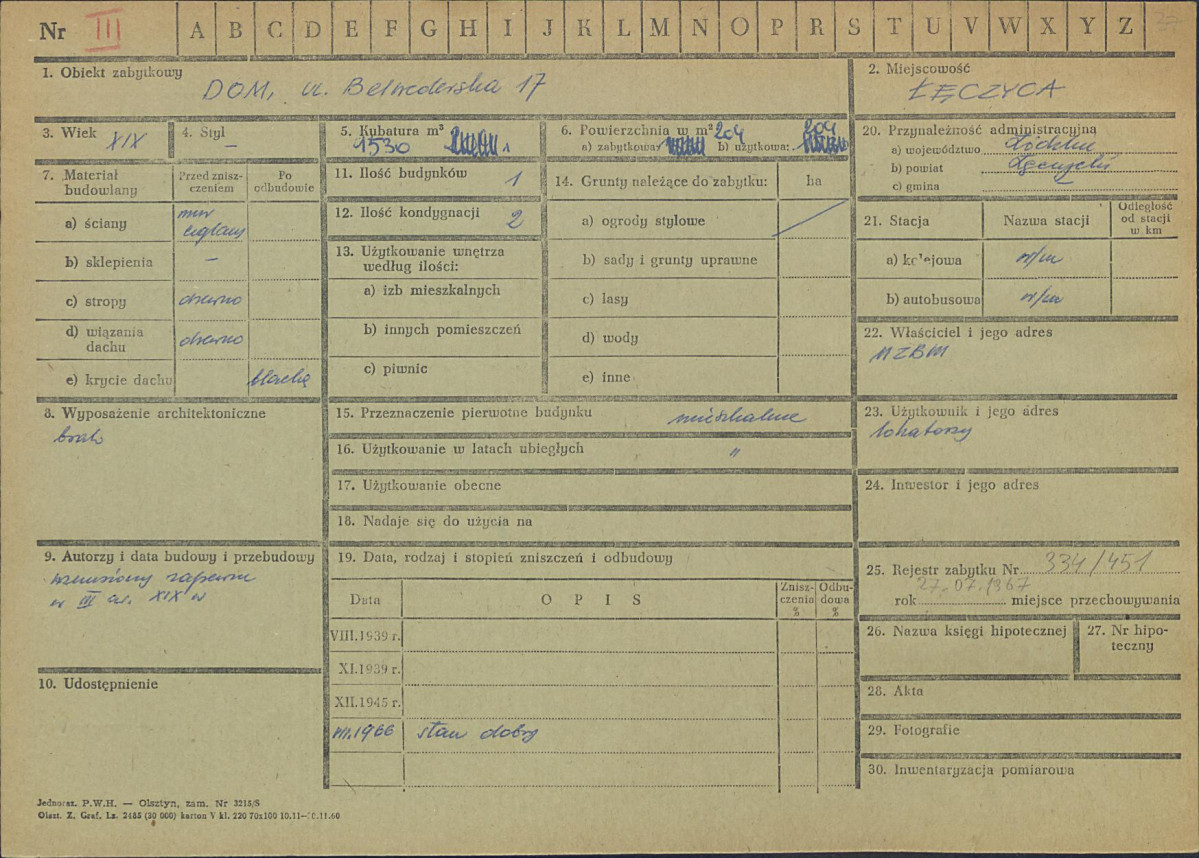 Nr III A B C D E F G H I J K L M N O P R S T U V W X Y Z
1. Obiekt zabytkowy
DOM, ul. Belwederska 17
2. Miejscowość
ŁĘCZYCA
3. Wiek XIX
4. Styl —
5. Kubatura m³
1530
6. Powierzchnia w m² 204 204
a) zabytkowa: b) użytkowa:
20. Przynależność administracyjna
a) województwo Łódzkie
b) powiat
c) gmina —
7. Materiał budowlany
Przed zniszczeniem
Po odbudowie
a) ściany
mur
ceglany
b) sklepienia —
c) stropy drewno
d) wiązania dachu drewno
e) krycie dachu blachą
11. Ilość budynków 1
12. Ilość kondygnacji 2
13. Użytkowanie wnętrza
według ilości:
a) izb mieszkalnych
b) innych pomieszczeń
c) piwnic
14. Grunty należące do zabytku: ha
a) ogrody stylowe
b) sady i grunty uprawne
c) lasy
d) wody
e) inne
21. Stacja
Nazwa stacji
Odległość
od stacji
w km
a) kolejowa w/m
b) autobusowa w/m
22. Właściciel i jego adres
MZBM
8. Wyposażenie architektoniczne
brak
15. Przeznaczenie pierwotne budynku mieszkalne
16. Użytkowanie w latach ubiegłych "
17. Użytkowanie obecne
18. Nadaje się do użycia na
23. Użytkownik i jego adres
lokatorzy
24. Inwestor i jego adres
9. Autorzy i data budowy i przebudowy
wzniesiony zapewne
w III ćw. XIX w
10. Udostępnienie
19. Data, rodzaj i stopień zniszczeń i odbudowy
Data
O P I S
Zniszczenia
%
Odbudowa
%
VIII.1939 r.
XI.1939 r.
XII.1945 r.
VII.1966 stan dobry
25. Rejestr zabytku Nr 334/451
27.07.1967
rok miejsce przechowywania
26. Nazwa księgi hipotecznej
27. Nr hipoteczny
28. Akta
29. Fotografie
30. Inwentaryzacja pomiarowa
Jednoraz. P.W.H. — Olsztyn, zam. Nr 3215/S
Olszt. Z. Graf. Lz. 2485 (30 000) karton V kl. 220 70x100 10.11—10.11.60